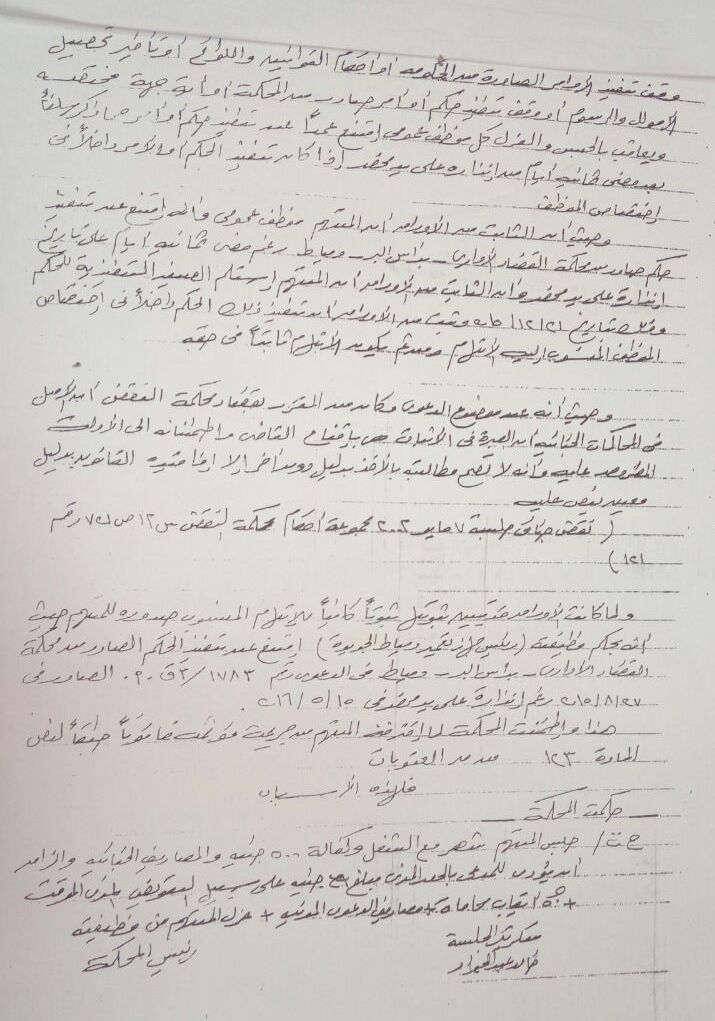 وقف تنفيذ الأوامر الصادرة من الحكومة أو أحكام القوانين واللوائح أو تأخير تحصيل
الأموال والرسوم أو وقف تنفيذ حكم أو أمر صادر من المحكمة أو أية جهة مختصة
ويعاقب بالحبس والعزل كل موظف عمومي إمتنع عمداً عن تنفيذ حكم أو أمر مما ذكر سلفاً
بعد مضى ثمانية أيام من إنذاره على يد محضر إذا كان تنفيذ الحكم أو الأمر داخلاً فى
إختصاص الموظف
وحيث أن الثابت من الأوراق أن المتهم موظف عمومى وأنه إمتنع عن تنفيذ
حكم صادر من محكمة القضاء الإدارى بـ رأس البر - دمياط رغم مضى ثمانية أيام على تاريخ
إنذاره على يد محضر وأن الثابت من الأوراق أن المتهم إستلم الصيغة التنفيذية للحكم
وذلك بتاريخ وثبت من الأوراق أن تنفيذ ذلك الحكم داخلاً فى إختصاص
الموظف المنسوب إليه الإتهام ومن ثم يكون الإتهام ثابتاً فى حقه
وحيث أنه عن موضوع الدعوى وكان من المقرر بقضاء محكمة النقض أن الأصل
فى المحاكمات الجنائية أن العبرة فى الأثبات هى بإقتناع القاضى واطمئنانه الى الأدلة
المطروحه عليه وأنه لا تصح مطالبته بالأخذ بدليل دون آخر إلا إذا قيده القانون بدليل
معين ينص عليه
( نقض جنائى جلسة ٧ مايو ٢٠٠٢ مجموعة أحكام محكمة النقض س ١٢ ص ٧٢٠ رقم
١٢١ )
ولما كانت الأوراق قد ثبوتاً كافياً للإتهام المنسوب صدوره للمتهم حيث
أنه بحكم وظيفته (رئيس جهاز تعمير دمياط الجديدة) إمتنع عن تنفيذ الحكم الصادر من محكمة
القضاء الإدارى بـ رأس البر - دمياط فى الدعوى رقم ١٧٨٣ / ٢ ق الصادر فى
٢٠١٥/٨/٢٧ رغم إنذاره على يد محضر فى ١٥ / ٥ / ٢٠١٦
هذا واطمئنت المحكمة لما إقترفه المتهم من جريمة مؤثمه قانوناً طبقاً لنص
المادة ١٢٣ من العقوبات
فلهذه الأسباب
حكمت المحكمة
حبس المتهم شهر مع الشغل وكفالة ٥٠٠ جنيه والمصاريف الجنائيه والزامه
أن يؤدى للمدعى بالحق المدنى مبلغ جنيه على سبيل التعويض المدنى المؤقت
+ أتعاب محاماه + مصاريف الدعوى المدنيه + عزل المتهم من وظيفته
سكرتير الجلسة رئيس المحكمة
خالد